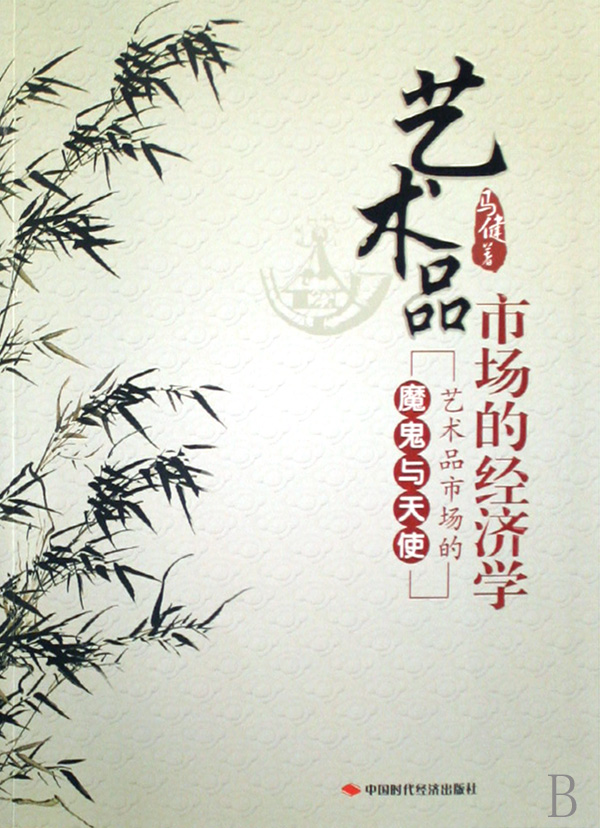 艺术品
市场的经济学
马健著
艺术品市场的
魔鬼与天使
中国时代经济出版社
B